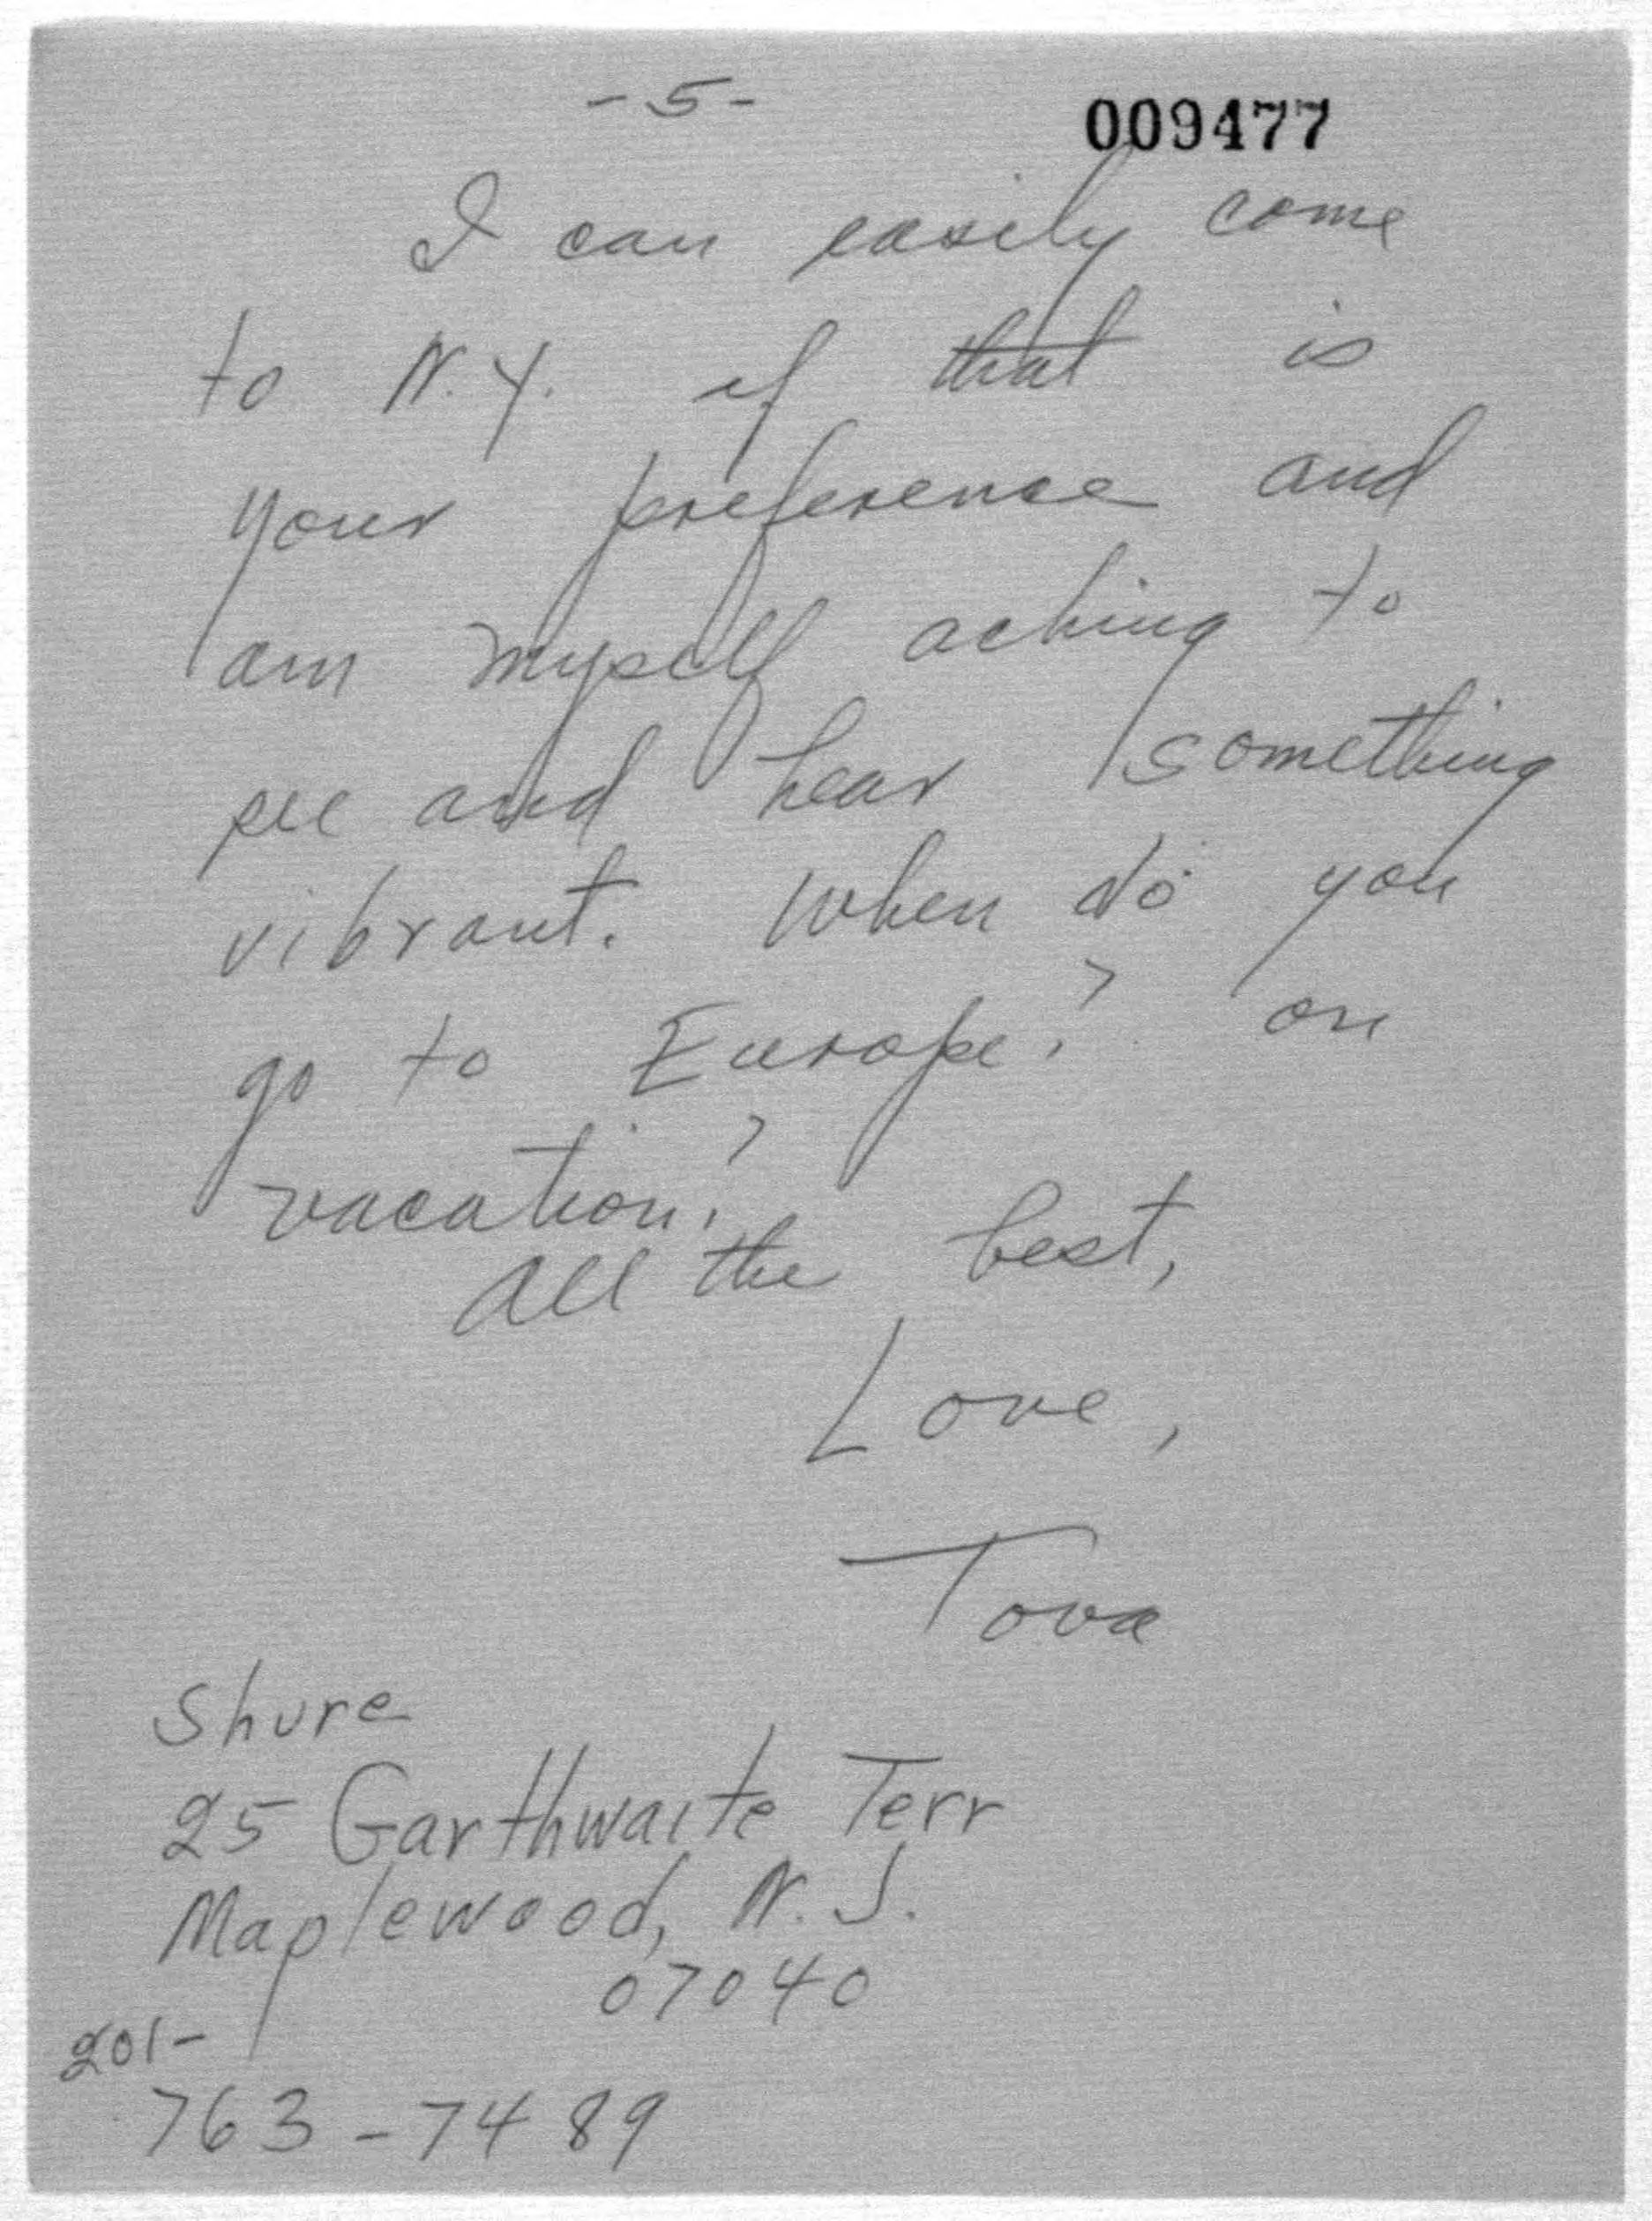 -5-
009477
I can easily come
to N.Y. if that is
your preference and
am myself aching to
see and hear something
vibrant. When do you
go to Europe? on
vacation?
All the best,
Love,
Tova
Shure
25 Garthwaite Terr
Maplewood, N.J.
07040
201-
763-7489